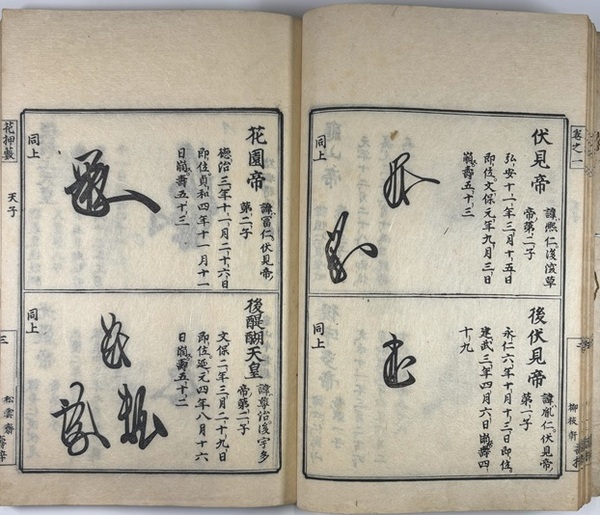 卷之一
伏見帝
諱熙仁。後深草
帝第二子
弘安十一年三月十五日
即位。文保元年九月三日
崩。壽五十三
同上
後伏見帝
諱胤仁。伏見帝
第一子
永仁六年十月十三日即位。
建武三年四月六日崩。壽四
十九
同上
柳枝軒
花園帝
諱富仁。伏見帝
第二子
德治三年十一月二十六日
即位貞和四年十一月十一
日崩。壽五十三
同上
後醍醐天皇
諱尊治。後宇多
帝第二子
文保二年三月二十九日
即位。延元四年八月十六
日崩。壽五十二
同上
花押藪
天子
三
松雲齋